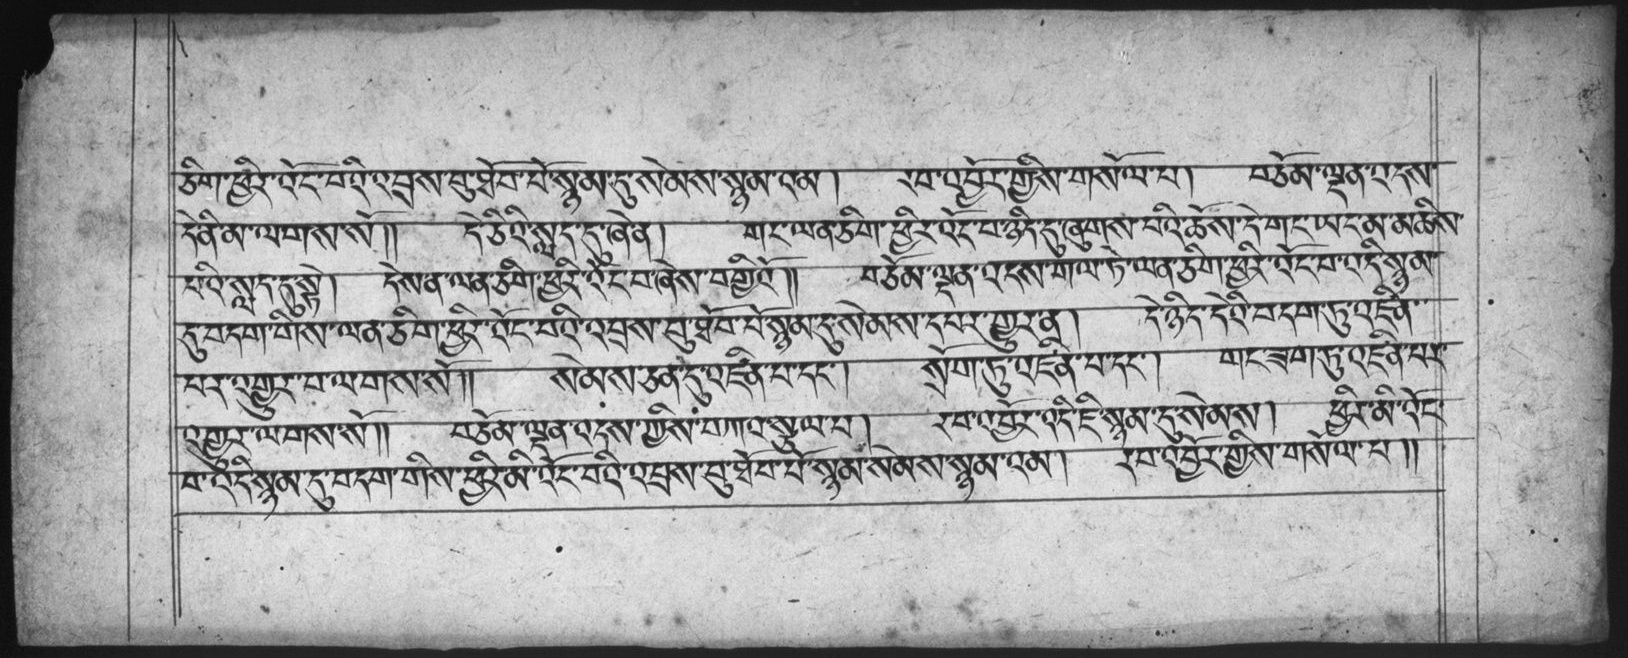 ཅིག་ཕྱིར་འོང་བའི་འབྲས་བུ་ཐོབ་པོ་སྙམ་དུ་སེམས་སྙམ་འམ། རབ་འབྱོར་གྱིས་གསོལ་པ། བཅོམ་ལྡན་འདས་
དེ་ནི་མ་ལགས་སོ།། དེ་ཅིའི་སླད་དུ་ཞེ་ན། གང་ལན་ཅིག་ཕྱིར་འོང་བ་ཉིད་དུ་ཞུགས་པའི་ཆོས་དེ་གང་ཡང་མ་མཆིས་
པའི་སླད་དུ་སྟེ། དེས་ན་ལན་ཅིག་ཕྱིར་འོང་བ་ཞེས་བགྱིའོ།། བཅོམ་ལྡན་འདས་གལ་ཏེ་ལན་ཅིག་ཕྱིར་འོང་བ་འདི་སྙམ་
དུ་བདག་གིས་ལན་ཅིག་ཕྱིར་འོང་བའི་འབྲས་བུ་ཐོབ་པོ་སྙམ་དུ་སེམས་དཔར་གྱུར་ན། དེ་ཉིད་དེའི་བདག་ཏུ་འཛིན་
པར་འགྱུར་བ་ལགས་སོ།། སེམས་ཅན་དུ་འཛིན་པ་དང༌། སྲོག་ཏུ་འཛིན་པ་དང༌། གང་ཟག་ཏུ་འཛིན་པར་
འགྱུར་ལགས་སོ།། བཅོམ་ལྡན་འདས་ཀྱིས་བཀའ་སྩལ་པ། རབ་འབྱོར་འདི་ཇི་སྙམ་དུ་སེམས། ཕྱིར་མི་འོང་
བ་འདི་སྙམ་དུ་བདག་གིས་ཕྱིར་མི་འོང་བའི་འབྲས་བུ་ཐོབ་པོ་སྙམ་སེམས་སྙམ་འམ། རབ་འབྱོར་གྱིས་གསོལ་པ།།